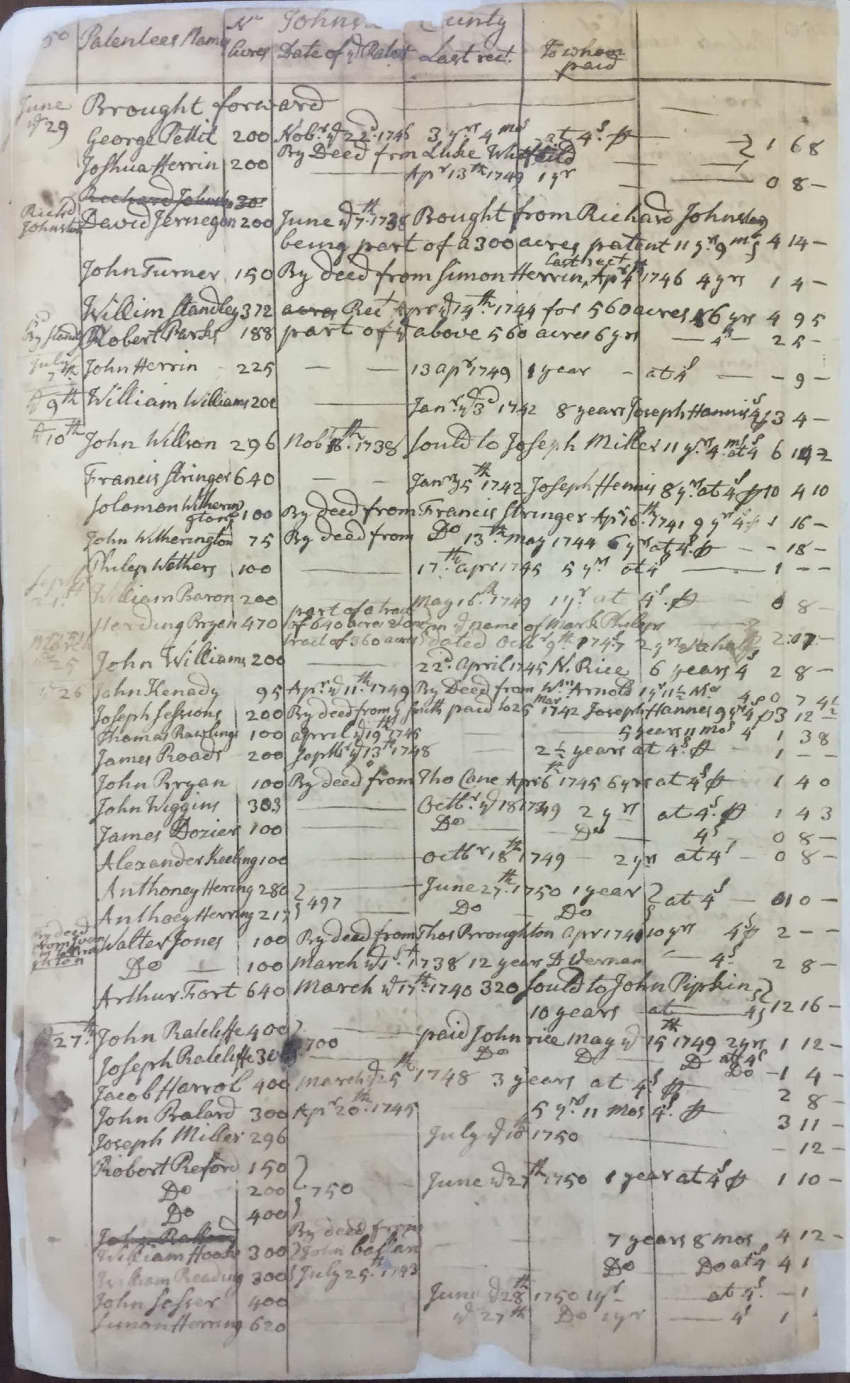 50 Patentees Name No Acres Johns County
Date of ye Patent Last rect. To whom paid
June ye 29 Brought forward
George Pettit 200 Nobr. ye 22d. 1746 3 yrs 4 mos at 4s. p 1 6 8
Joshua Herrin 200 By Deed from Luke Whitfield
Apr 13th 1749 1 yr 0 8 -
Richard Johnston 30
Richd Johnston David Jernegan 200 June ye 7th. 1738 Bought from Richard Johnston
being part of a 300 acres patent 11 yrs 9 ms 4 14 -
John Turner 150 By deed from Simon Herrin, last rect Apr 4th 1746 4 yrs 1 4 -
Willim Standley 372 acres Rect Apr ye 14th. 1744 for 560 acres 6 yrs 4 9 5
By Standly Robert Parks 188 part of ye above 560 acres 6 yrs 4s 2 5 -
July ye 7th John Herrin 225 - - 13 apr 1749 1 year - at 4s - - 9 -
ye 9th William Williams 200 Janr. ye 3d 1742 8 years Joseph Hannis 4s p 3 4 -
ye 10th John Willson 296 Nobr 8th. 1738 Sould to Joseph Miller 11 yrs. 4 ms at 4s 6 14 2
Francis Stringer 640 - - Janr 5th 1742 Joseph Hennis 8 yrs at 4s p 10 4 10
Solomon Witherington 100 By deed from Francis Stringer Apr 16th 1741 9 yrs 4s p 1 16 -
John Witherington 75 By deed from Do 13th may 1744 6 yrs at 4s. p - - 18 -
Philip Wethers 100 17th apr 1745 5 yrs at 4s 1 - -
William Baron 200 May 16th 1749 1 yr at 4s. p 0 8 -
Harding Bryan 470 part of a tract of 640 acres & one in ye name of Mark Philips
tract of 360 acres dated Octr 9th 1747 2 yrs 2 07 -
March ye 25 John Williams 200 22d. April 1745 N. Rice 6 years 4s 2 8 -
ye 26 John Kenady 95 Apr. ye 11th. 1749 By Deed from Wm Arnold 1 yr 11½ Mo 4s 0 7 4½
Joseph Sessions 200 By deed from paid to 25 Mar 1742 Joseph Hannes 9 yrs 4s p 3 12 -
Thomas Rawlings 100 april ye 19th 1745 5 years 11 mos 4s 1 3 8
James Roads 200 Septbr ye 13th 1748 2½ years at 4s. p 1 - -
John Bryan 100 By deed from Tho Cane Apr 6th 1745 6 yrs at 4s p 1 4 0
John Wiggins 303 Octbr ye 18 1749 2 yrs at 4s. p 1 4 3
James Dozier 100 Do Do 4s 0 8 -
Alexander Keeling 100 Octbr 18th 1749 - 2 yrs at 4s - 0 8 -
Anthoney Herring 280 } 497 June 27th. 1750 1 year } at 4s - 0 10 -
Anthoey Herring 217 Do Do
By deed from Walter Jones 100 By deed from Thos Broughton apr 1740 10 yrs 4s p 2 - -
Do 100 March ye 1st 1738 12 years D Vernan - 4s. 2 8 -
Arthur Fort 640 March ye 17th. 1740 320 Sould to John Pipkin
10 years at 4s 12 16 -
ye 27th John Ratcliffe 400 } 700 paid John rice May ye 15th 1749 2 yrs 1 12 -
Joseph Ratcliffe 300 Do Do D at 4s Do - 1 4 -
Jacob Harrol 400 March ye 25th 1748 3 years at 4s p 2 8 -
John Balard 300 Apr 20th. 1745 5 yrs 11 mos 4s. p 3 11 -
Joseph Miller 296 July ye 10 1750 - 12 -
Robert Reford 150 }
Do 200 } 750 - June ye 27th 1750 1 year at 4s p 1 10 -
Do 400 }
William Hooks 300 } By deed from John 7 years 8 mos 4 12 -
William Reading 300 } July 25th. 1743 Do Do at 4s 4 1
John Sosser 400 June ye 28th 1750 1 yr at 4s. - 1
Simon Herring 620 ye 27th Do 1 yr 4s 1 1